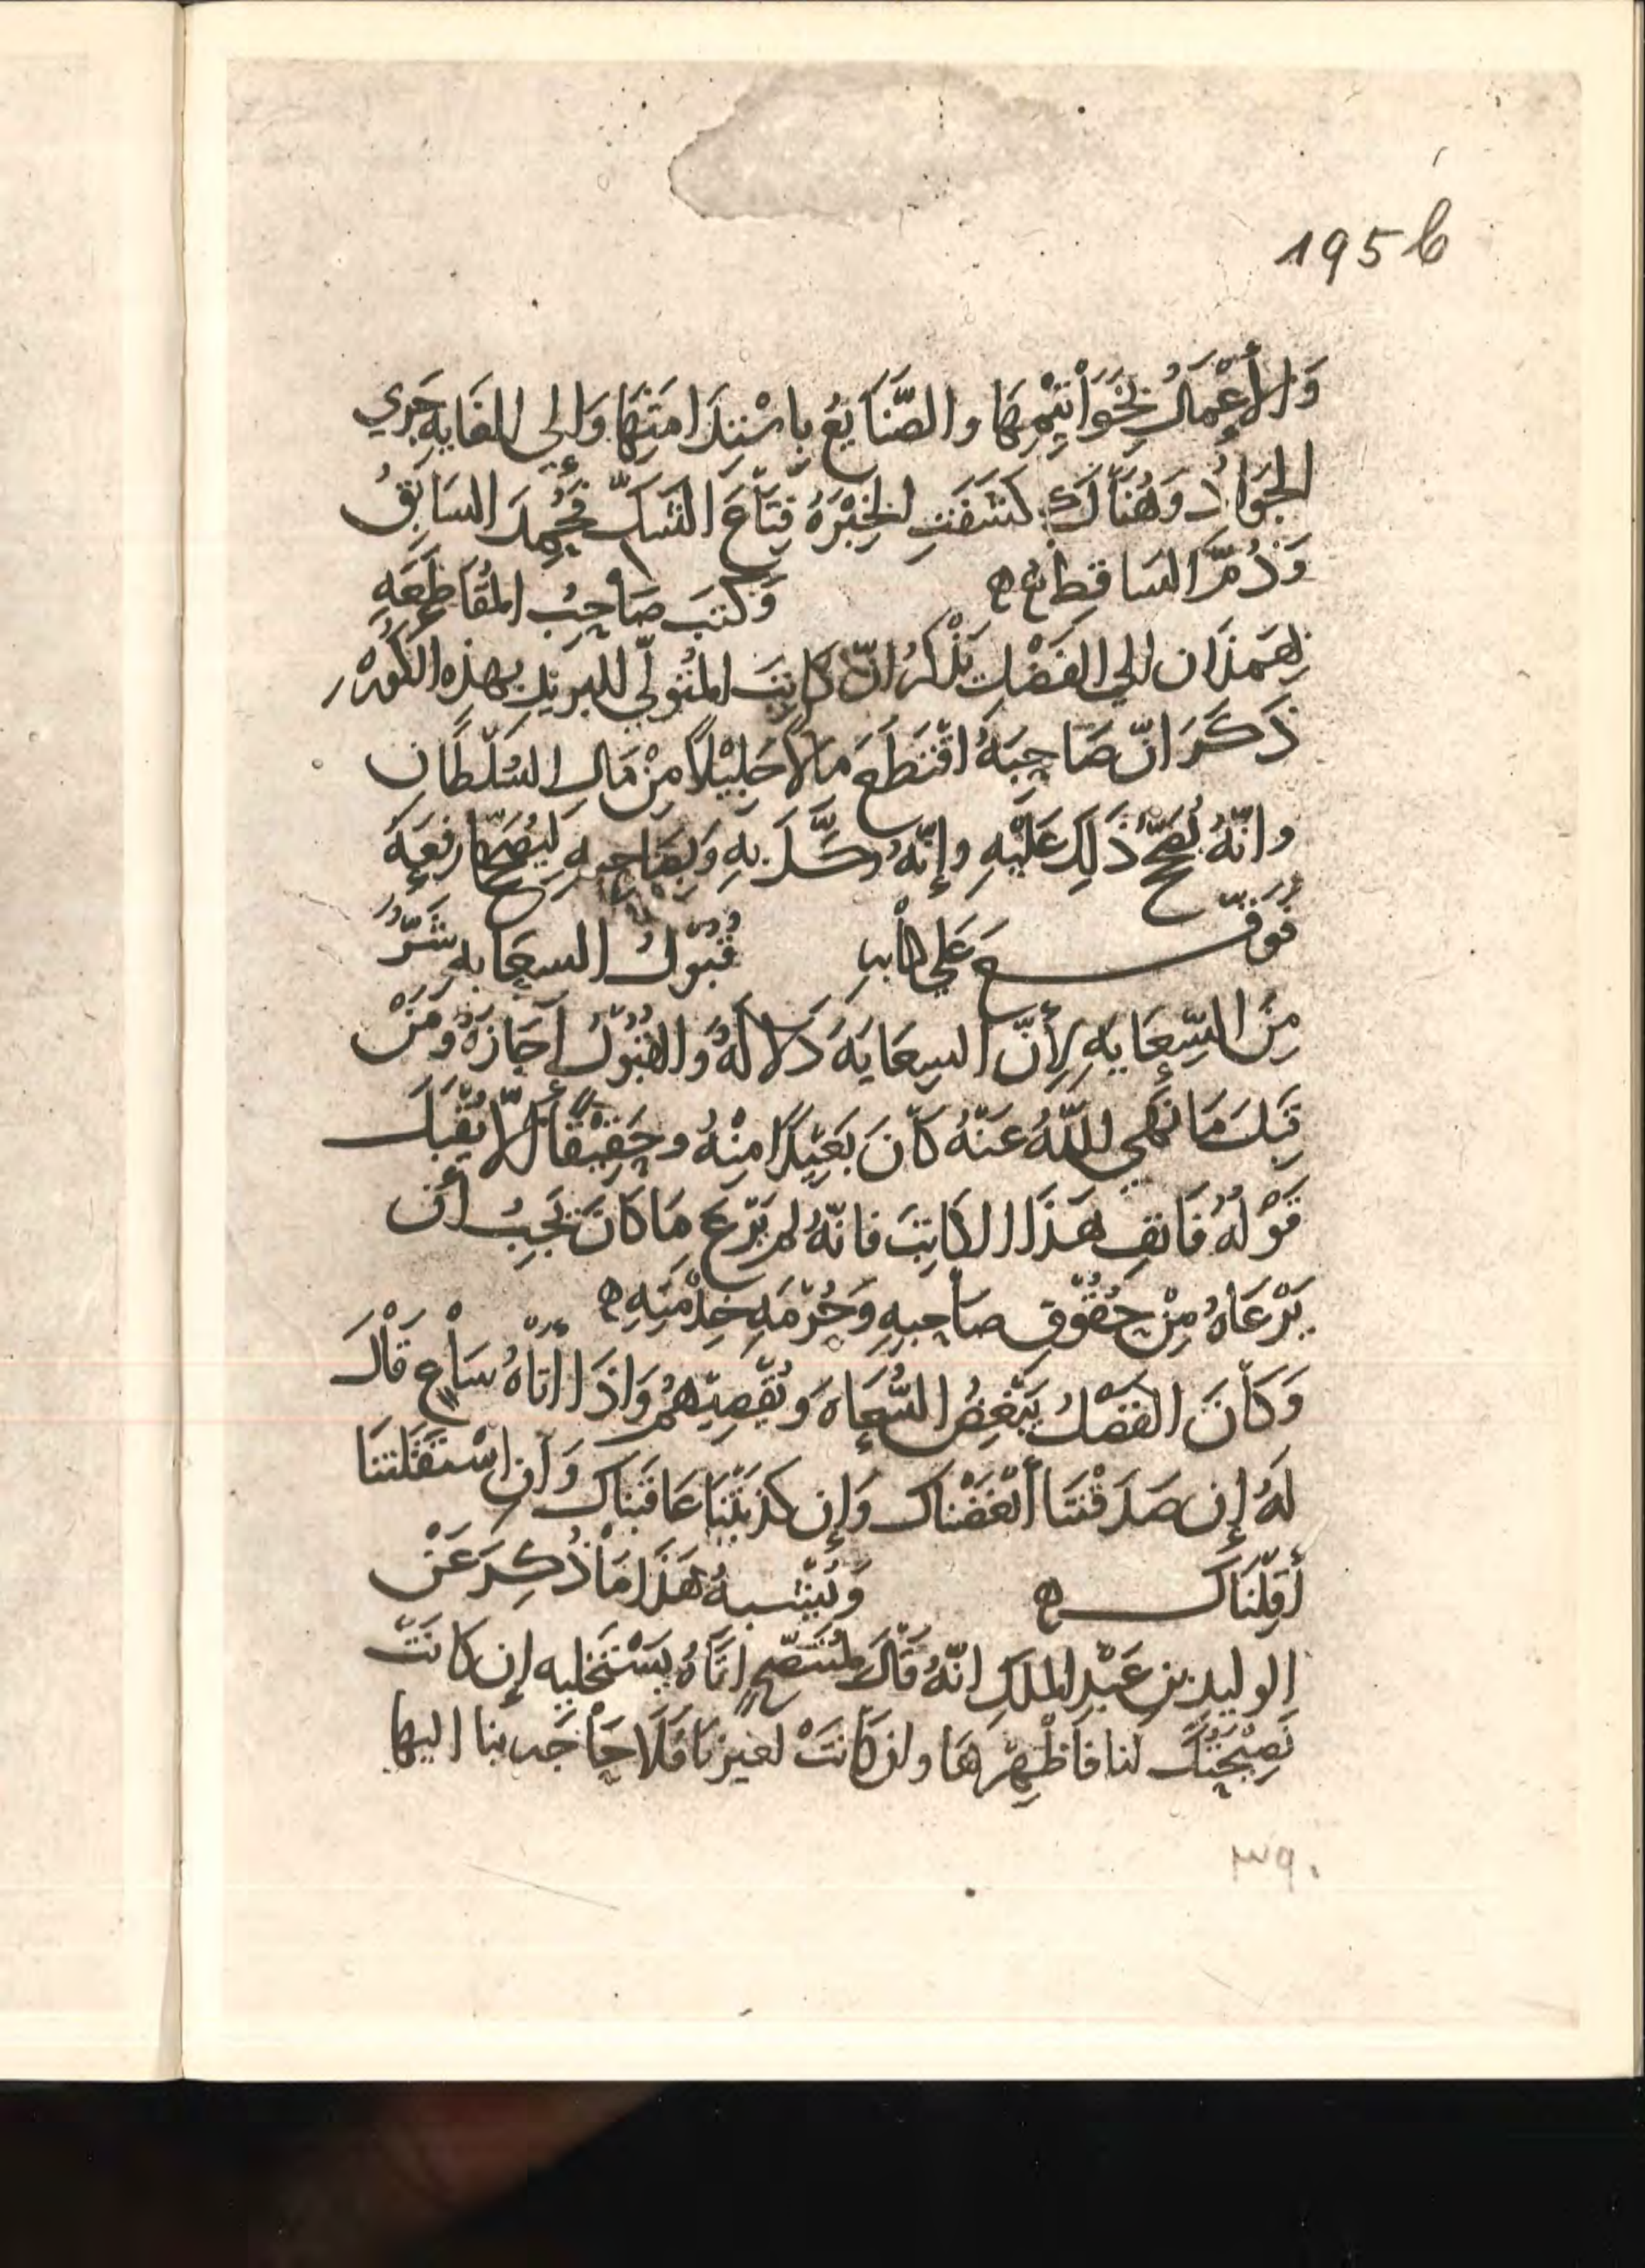 195b
وَالأَعْمَالُ بِخَوَاتِيْمِهَا والصَّنَايعُ بِاسْتِدَامَتِهَا وَإلى الغَايهِ جَري
الجَوَادُ وَهُنَاكَ كَشَفَتِ الخِبْرَهُ قِنَاعَ الشَكِّ فحُمِدَ السَابقُ
وَذُمَّ السَاقِطُ وَكَتبَ صَاحِبُ المُقَاطَعَهِ
بِهَمذَان الي الفَضْلِ يَذْكرُ انّ كَاتِبَ المُتَولّي للبَريدِ بهذِه الكُورَهْ
ذَكَرَ انّ صَاحِبَهُ اقْتَطَعَ مَالاً جَلِيْلاً مِنْ مَالِ السُلْطَان
وانّهُ يُصَحّحُ ذَلِكَ عَلَيْهِ وإنّهُ وكَّلَ بهِ وَبِصَاحِبهِ لِيُصَحّحَا رفعَهُ
فَوَقّع عَلي كتابهِ قُبُوْلُ السِعَايهِ شَرٌّ
مِنَ السِّعَايهِ لِأَنّ السِعَايَهَ دَلالَهٌ وَالقُبُوْلَ اجَازَهٌ وَمَنْ
قَبِلَ مَا نَهي اللّهُ عَنْهُ كَانَ بَعِيْدًا مِنْهُ وحَقِيْقًا ألّا يُقْبَلَ
قَوْلُهُ فَانفِ هَذَا الكَاتِبَ فانّهُ لم يَرْعَ مَا كَانَ يَجِبُ أن
يَرْعَاهُ مِنْ حُقُوْقِ صَاحِبهِ وَحُرْمَهِ خِدْمَتِهِ
وَكَانَ الفَضْلُ يَبْغَضُ السُّعَاهَ وَيُقْصِيْهُمُ وَاذَا أتَاهُ سَاعٍ قَالَ
لَهُ إن صَدَقْتَنَا أبْغَضْنَاك وَإن كَذَبْتَنَا عَاقَبْنَاك وَانِ اسْتَقَلْتَنَا
أقَلْنَاك وَيُشْبهُ هَذَا مَا ذُكِرَ عَنْ
الوليدِ بن عَبْدِ المَلِكِ انّهُ قَالَ لمُتَنَصّحٍ اتَاهُ يَسْتَخليه إن كَانَتْ
نَصِيْحَتُكَ لَنا فَأظْهِرْهَا وان كَانَتْ لغيرنَا فَلَا حَاجَه بنا اليها
٣٩٠